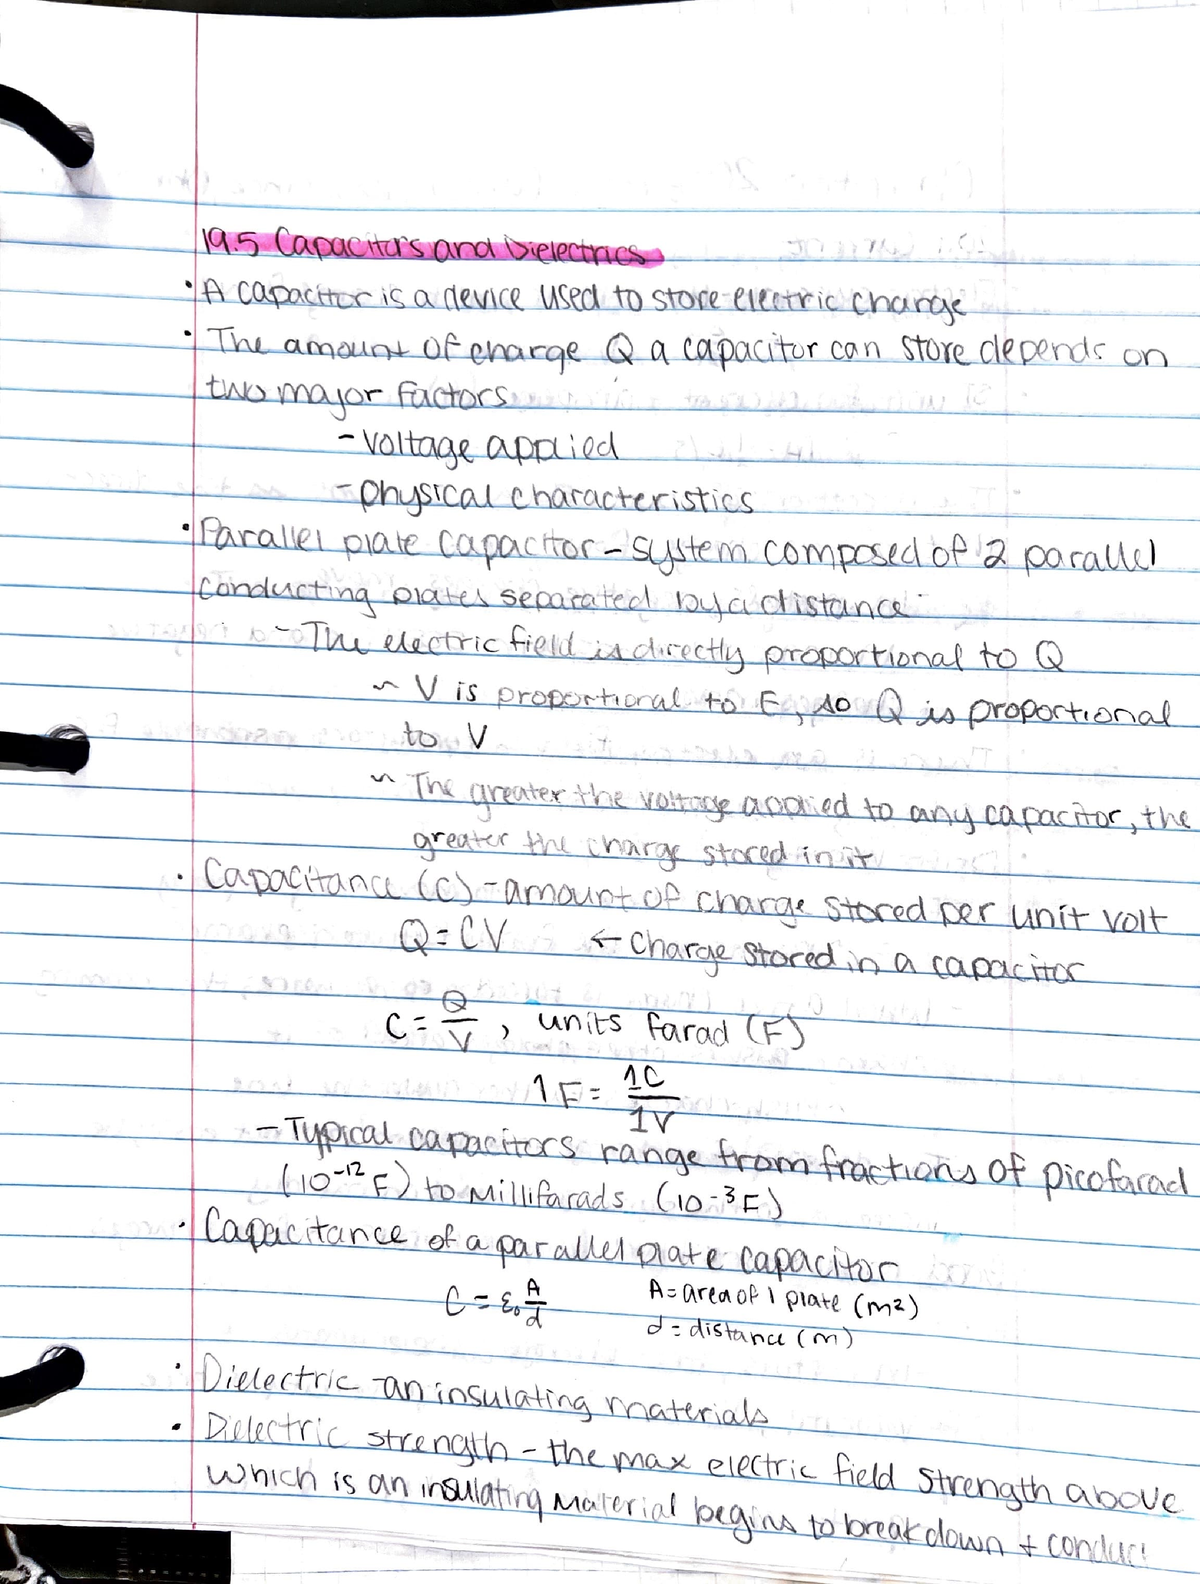 19.5 Capacitors and Dielectrics
• A capacitor is a device used to store electric charge
• The amount of charge Q a capacitor can store depends on
two major factors
- voltage applied
- physical characteristics
• Parallel plate capacitor - system composed of 2 parallel
conducting plates separated by a distance
- The electric field is directly proportional to Q
~ V is proportional to E, so Q is proportional
to V
~ The greater the voltage applied to any capacitor, the
greater the charge stored in it
• Capacitance (C) - amount of charge stored per unit volt
Q = CV ← Charge stored in a capacitor
C = Q/V, units farad (F)
1F = 1C/1V
- Typical capacitors range from fractions of picofarad
(10⁻¹² F) to Millifarads (10⁻³ F)
• Capacitance of a parallel plate capacitor
C = ε₀ A/d A = area of 1 plate (m²)
d = distance (m)
• Dielectric - an insulating materials
• Dielectric strength - the max electric field strength above
which is an insulating material begins to breakdown + conduct